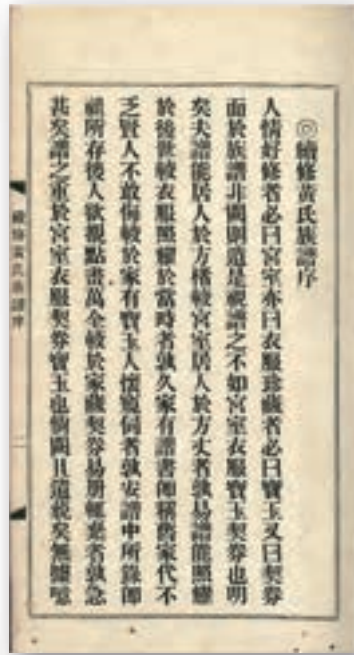 ◎續修黃氏族譜序
人情好修者必曰宮室亦曰衣服珍藏者必曰寶玉又曰契券
而於族譜非闕則遺是視譜之不如宮室衣服寶玉契券也明
矣夫譜能居人於方楮較宮室居人於方丈者孰易譜能照耀
於後世較衣服照耀於當時者孰久家有譜書即稱舊家代不
乏賢人不敢侮較於家有寶玉人懷覬伺者孰安譜中所錄即
祖所存後人欲視點畫萬全較於家藏契券易朋輒棄者孰急
甚矣譜之重於宮室衣服契券寶玉也倘闕且遺稅矣無據噫
續修黃氏族譜序
二